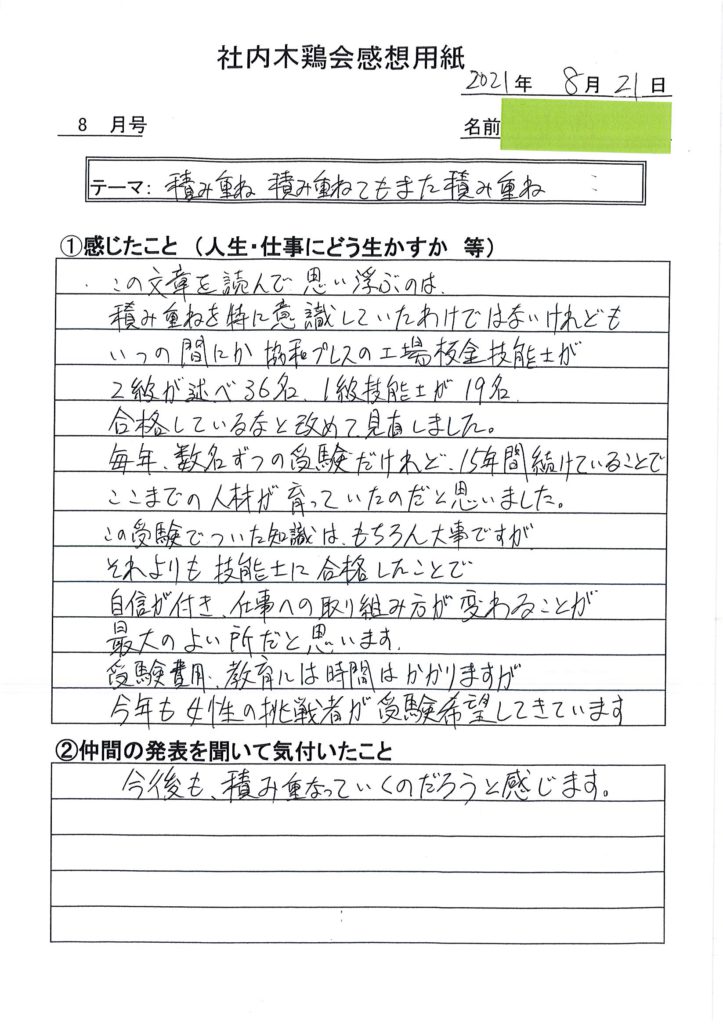 社内木鶏会感想用紙
2021年 8月 21日
8 月号
名前
テーマ: 積み重ね 積み重ねてもまた積み重ね
①感じたこと (人生・仕事にどう生かすか 等)
この文章を読んで思い浮ぶのは、
積み重ねを特に意識していたわけではないけれども
いつの間にか 協和プレスの工場板金技能士が
2級が述べ36名、1級技能士が19名、
合格しているなと改めて見直しました。
毎年、数名ずつの受験だけれど、15年間続けていることで
ここまでの人材が育っていたのだと思いました。
この受験でついた知識は、もちろん大事ですが
それよりも技能士に合格したことで
自信が付き、仕事への取り組み方が変わることが
最大のよい所だと思います。
受験費用、教育には時間はかかりますが
今年も女性の挑戦者が受験希望してきています
②仲間の発表を聞いて気付いたこと
今後も、積み重なっていくのだろうと感じます。